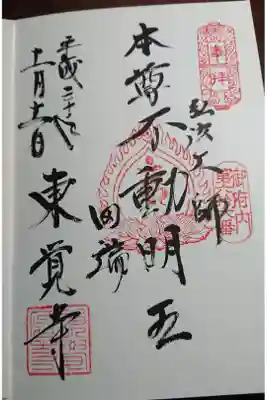 奉拝
弘法大師
御府内
第六十六番
本尊不動明王
田端
東覚寺
平成二十八年
十一月十六日